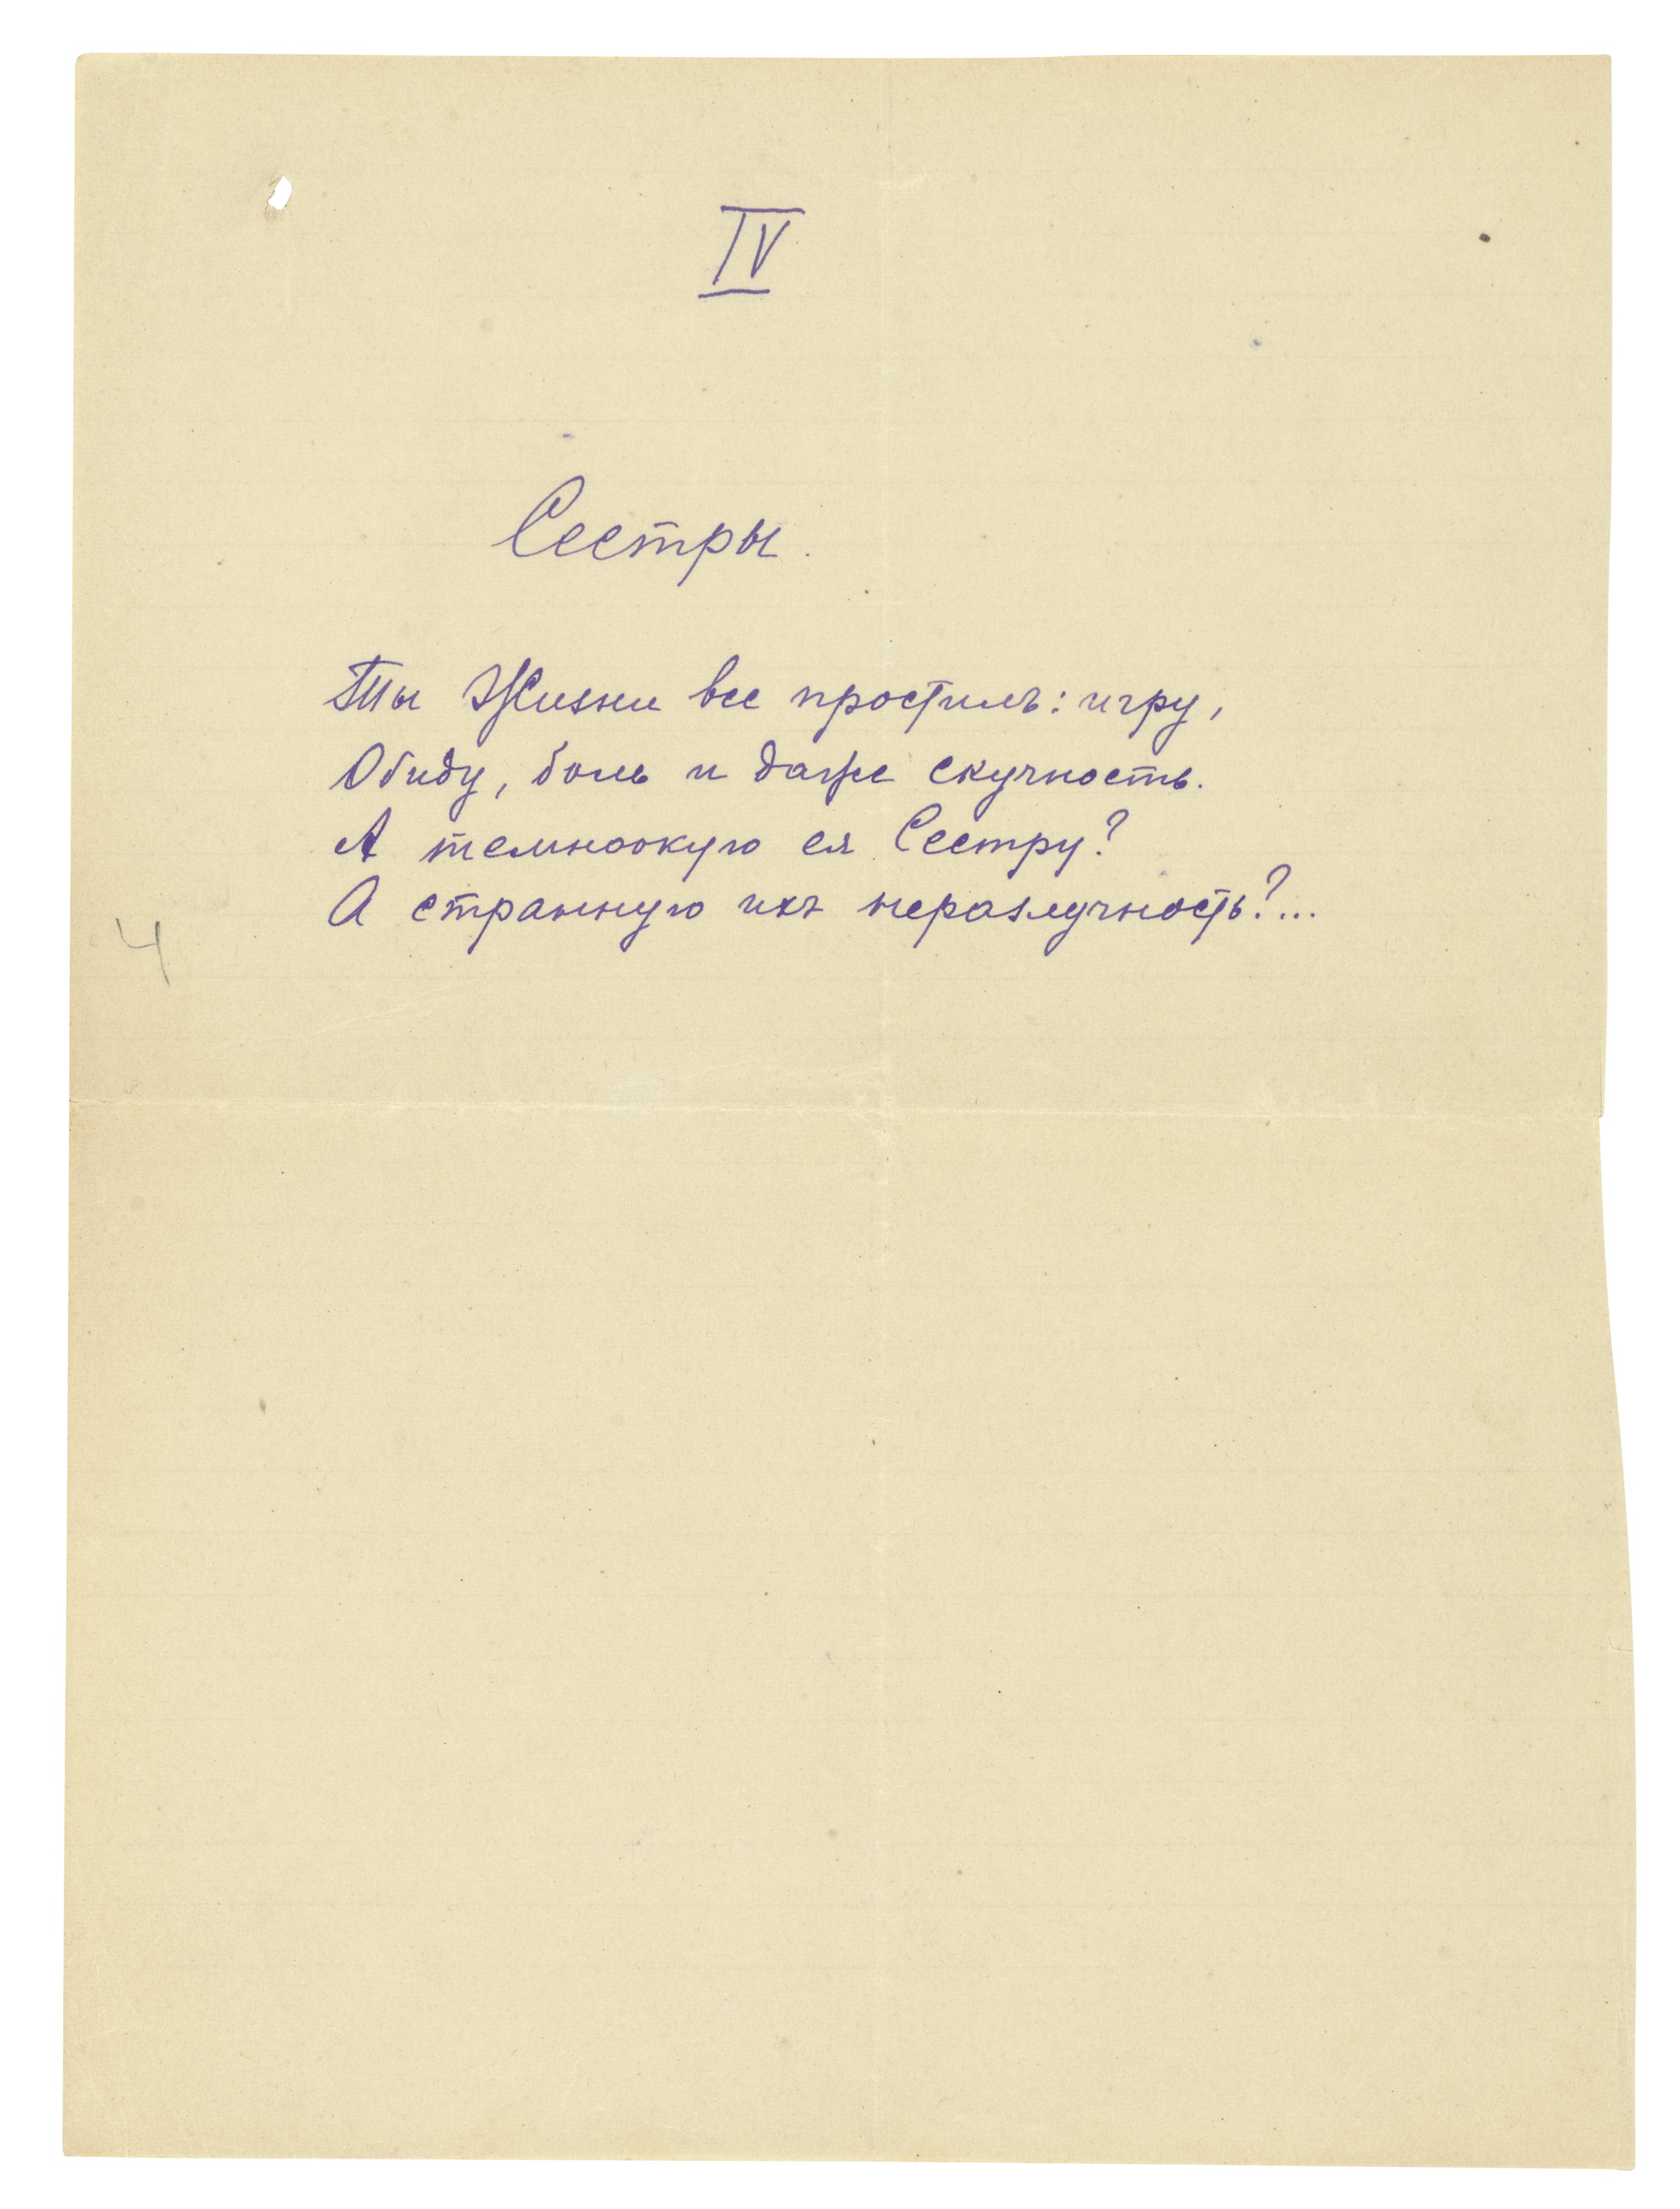 IV
Сестры.
Ты Жизни все простилъ: игру,
Обиду, боль и даже скучность.
А темноокую ея Сестру?
А странную ихъ неразлучность?...
4